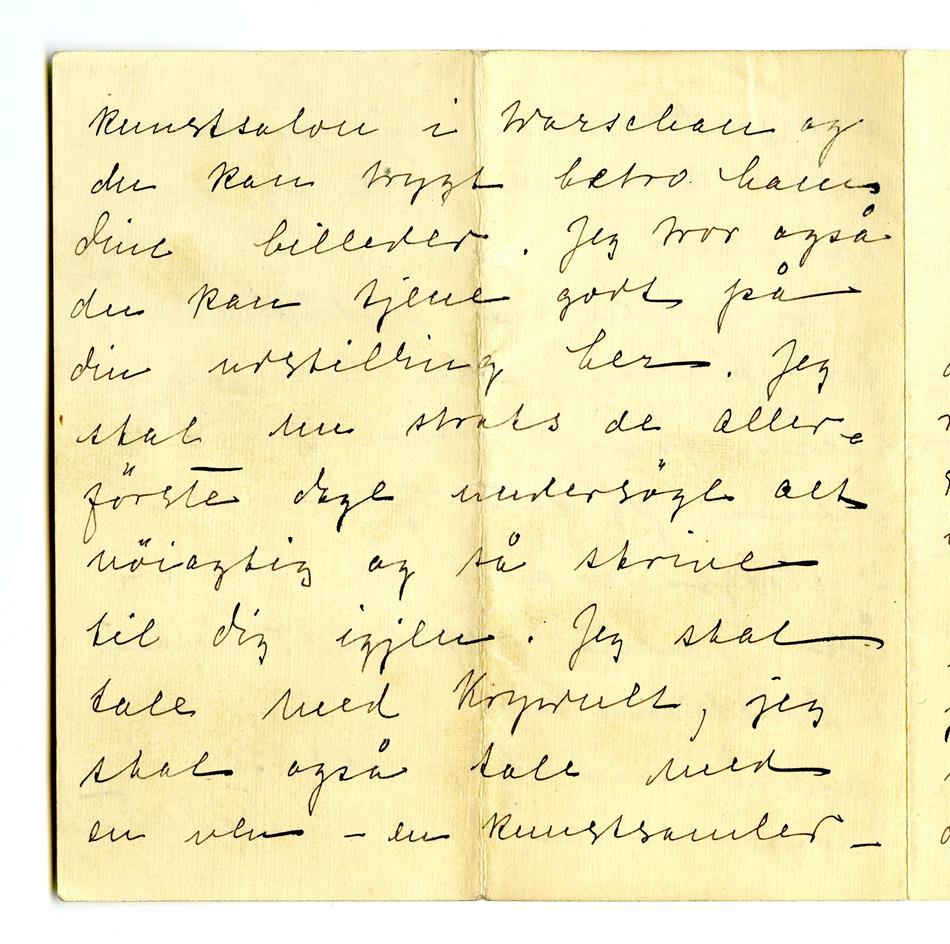 kunstsalon i Warschau og
du kan trygt betro ham
dine billeder. Jeg tror også
du kan tjene godt på
din udstilling her. Jeg
skal nu straks de aller-
förste dage undersöge alt
nöiagtig og så skrive
til dig igjen. Jeg skal
tale med Krywult, jeg
skal også tale med
en ven – en kunstsamler –